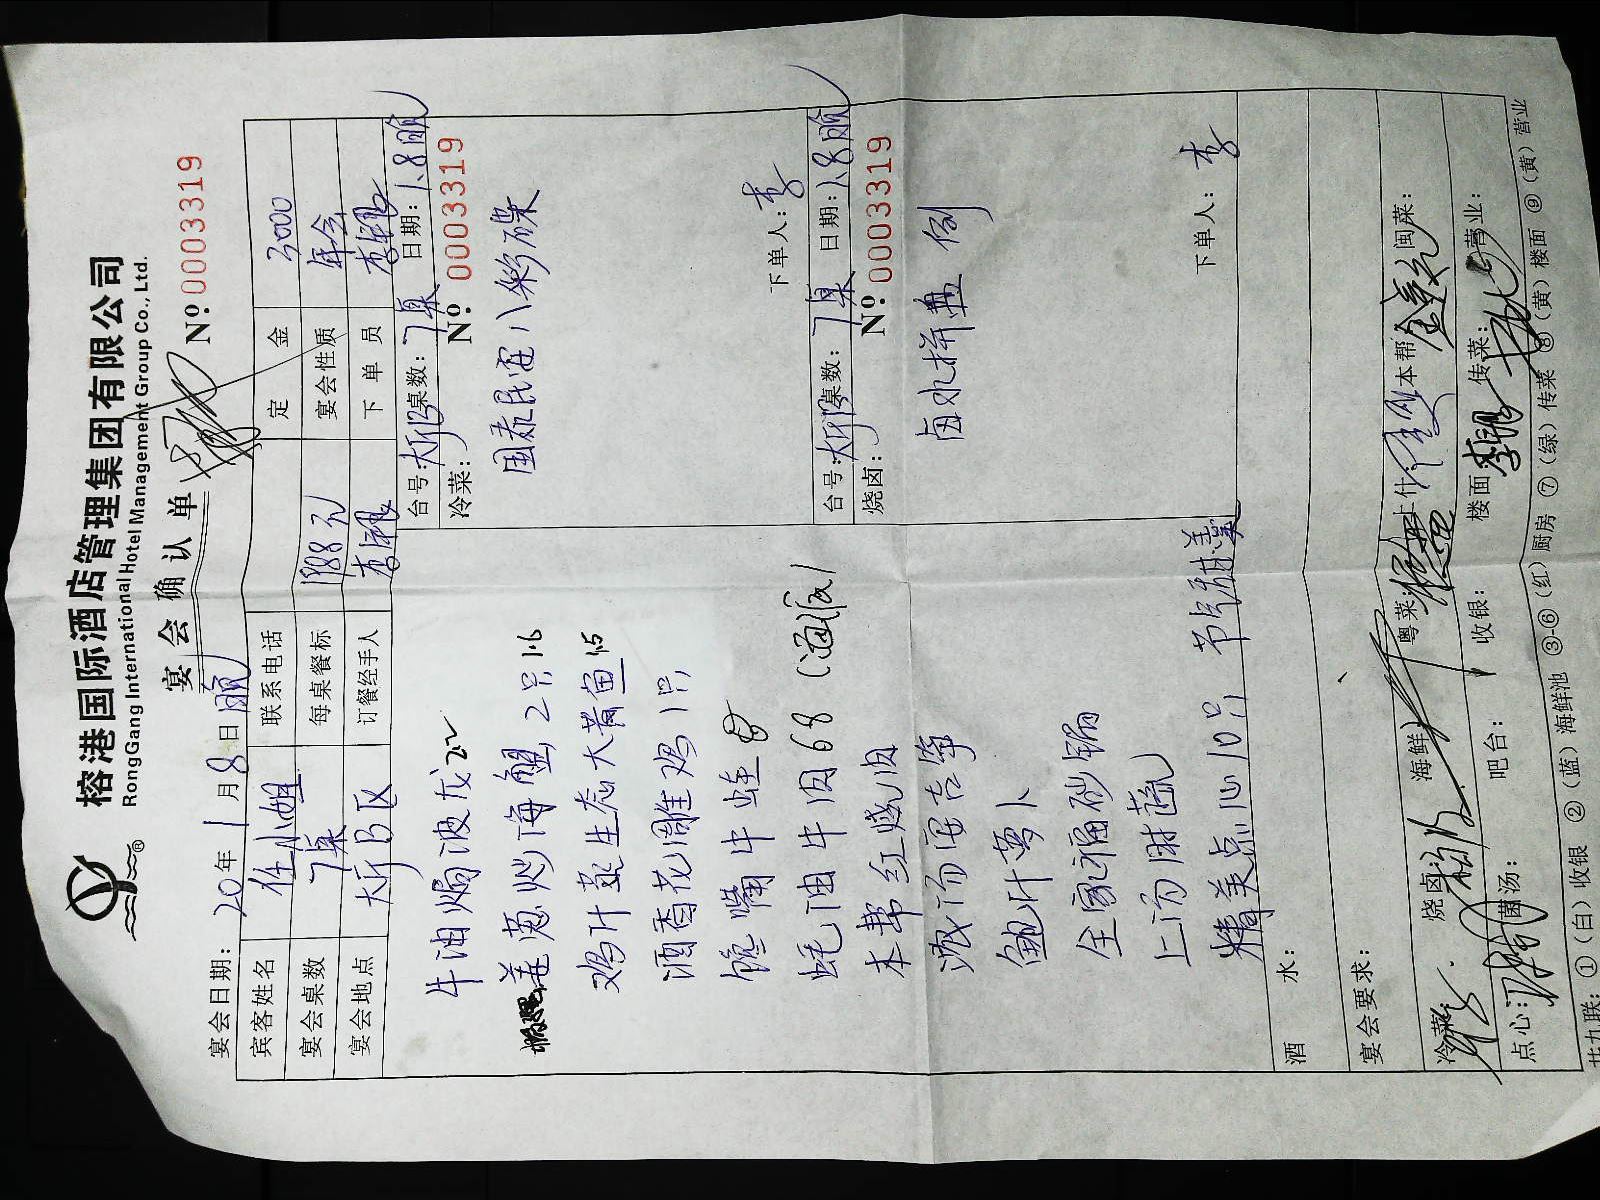 榕港国际酒店管理集团有限公司
RongGang International Hotel Management Group Co., Ltd.
宴会确认单
Nº:0003319
宴会日期: 20 年 1 月 8 日
宾客姓名 任小姐 联系电话 定金 3000
宴会桌数 7桌 每桌餐标 1988元 宴会性质 年会
宴会地点 大厅B区 订餐经手人 下单员
牛油焗波龙 2.2
姜葱炒海蟹 2只 1.6
鸡汁蒸生态大黄鱼 1.5
酒香花雕鸡 1只
馋嘴牛蛙
蚝油牛肉 68
本帮红烧肉
浓汤
鲍汁萝卜
全家福砂锅
上汤时蔬
精美点心10只
甜羹
台号: 大厅B 桌数: 7桌 日期: 1.8
冷菜: Nº:0003319
国泰民安八彩碟
下单人: 李
台号: 大厅B 桌数: 7桌 日期: 1.8
烧卤: Nº:0003319
卤水拼盘 例
下单人: 李
酒水:
宴会要求:
冷菜: 烧卤: 海鲜: 粤菜: 上什: 本帮: 闽菜:
点心: 菌汤: 吧台: 收银: 楼面: 传菜: 营业:
共九联: ①(白)收银 ②(蓝)海鲜池 ③-⑥(红)厨房 ⑦(绿)传菜 ⑧(黄)楼面 ⑨(黄)营业